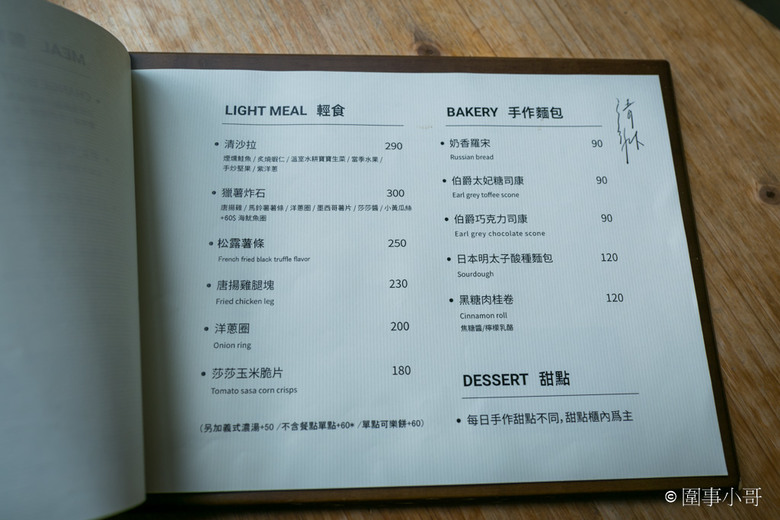 LIGHT MEAL 輕食
清沙拉 290
煙燻鮭魚 / 炙燒蝦仁 / 溫室水耕寶寶生菜 / 當季水果 /
手炒堅果 / 紫洋蔥
獵薯炸石 300
唐揚雞 / 馬鈴薯薯條 / 洋蔥圈 / 墨西哥薯片 / 莎莎醬 / 小黃瓜絲
+60$ 海魷魚圈
松露薯條 250
French fried black truffle flavor
唐揚雞腿塊 230
Fried chicken leg
洋蔥圈 200
Onion ring
莎莎玉米脆片 180
Tomato sasa corn crisps
(另加義式濃湯+50 /不含餐點單點+60* /單點可樂餅+60)
BAKERY 手作麵包
奶香羅宋 90
Russian bread
伯爵太妃糖司康 90
Earl grey toffee scone
伯爵巧克力司康 90
Earl grey chocolate scone
日本明太子酸種麵包 120
Sourdough
黑糖肉桂卷 120
Cinnamon roll
焦糖醬/檸檬乳酪
DESSERT 甜點
每日手作甜點不同，甜點櫃內爲主
© 圍事小哥